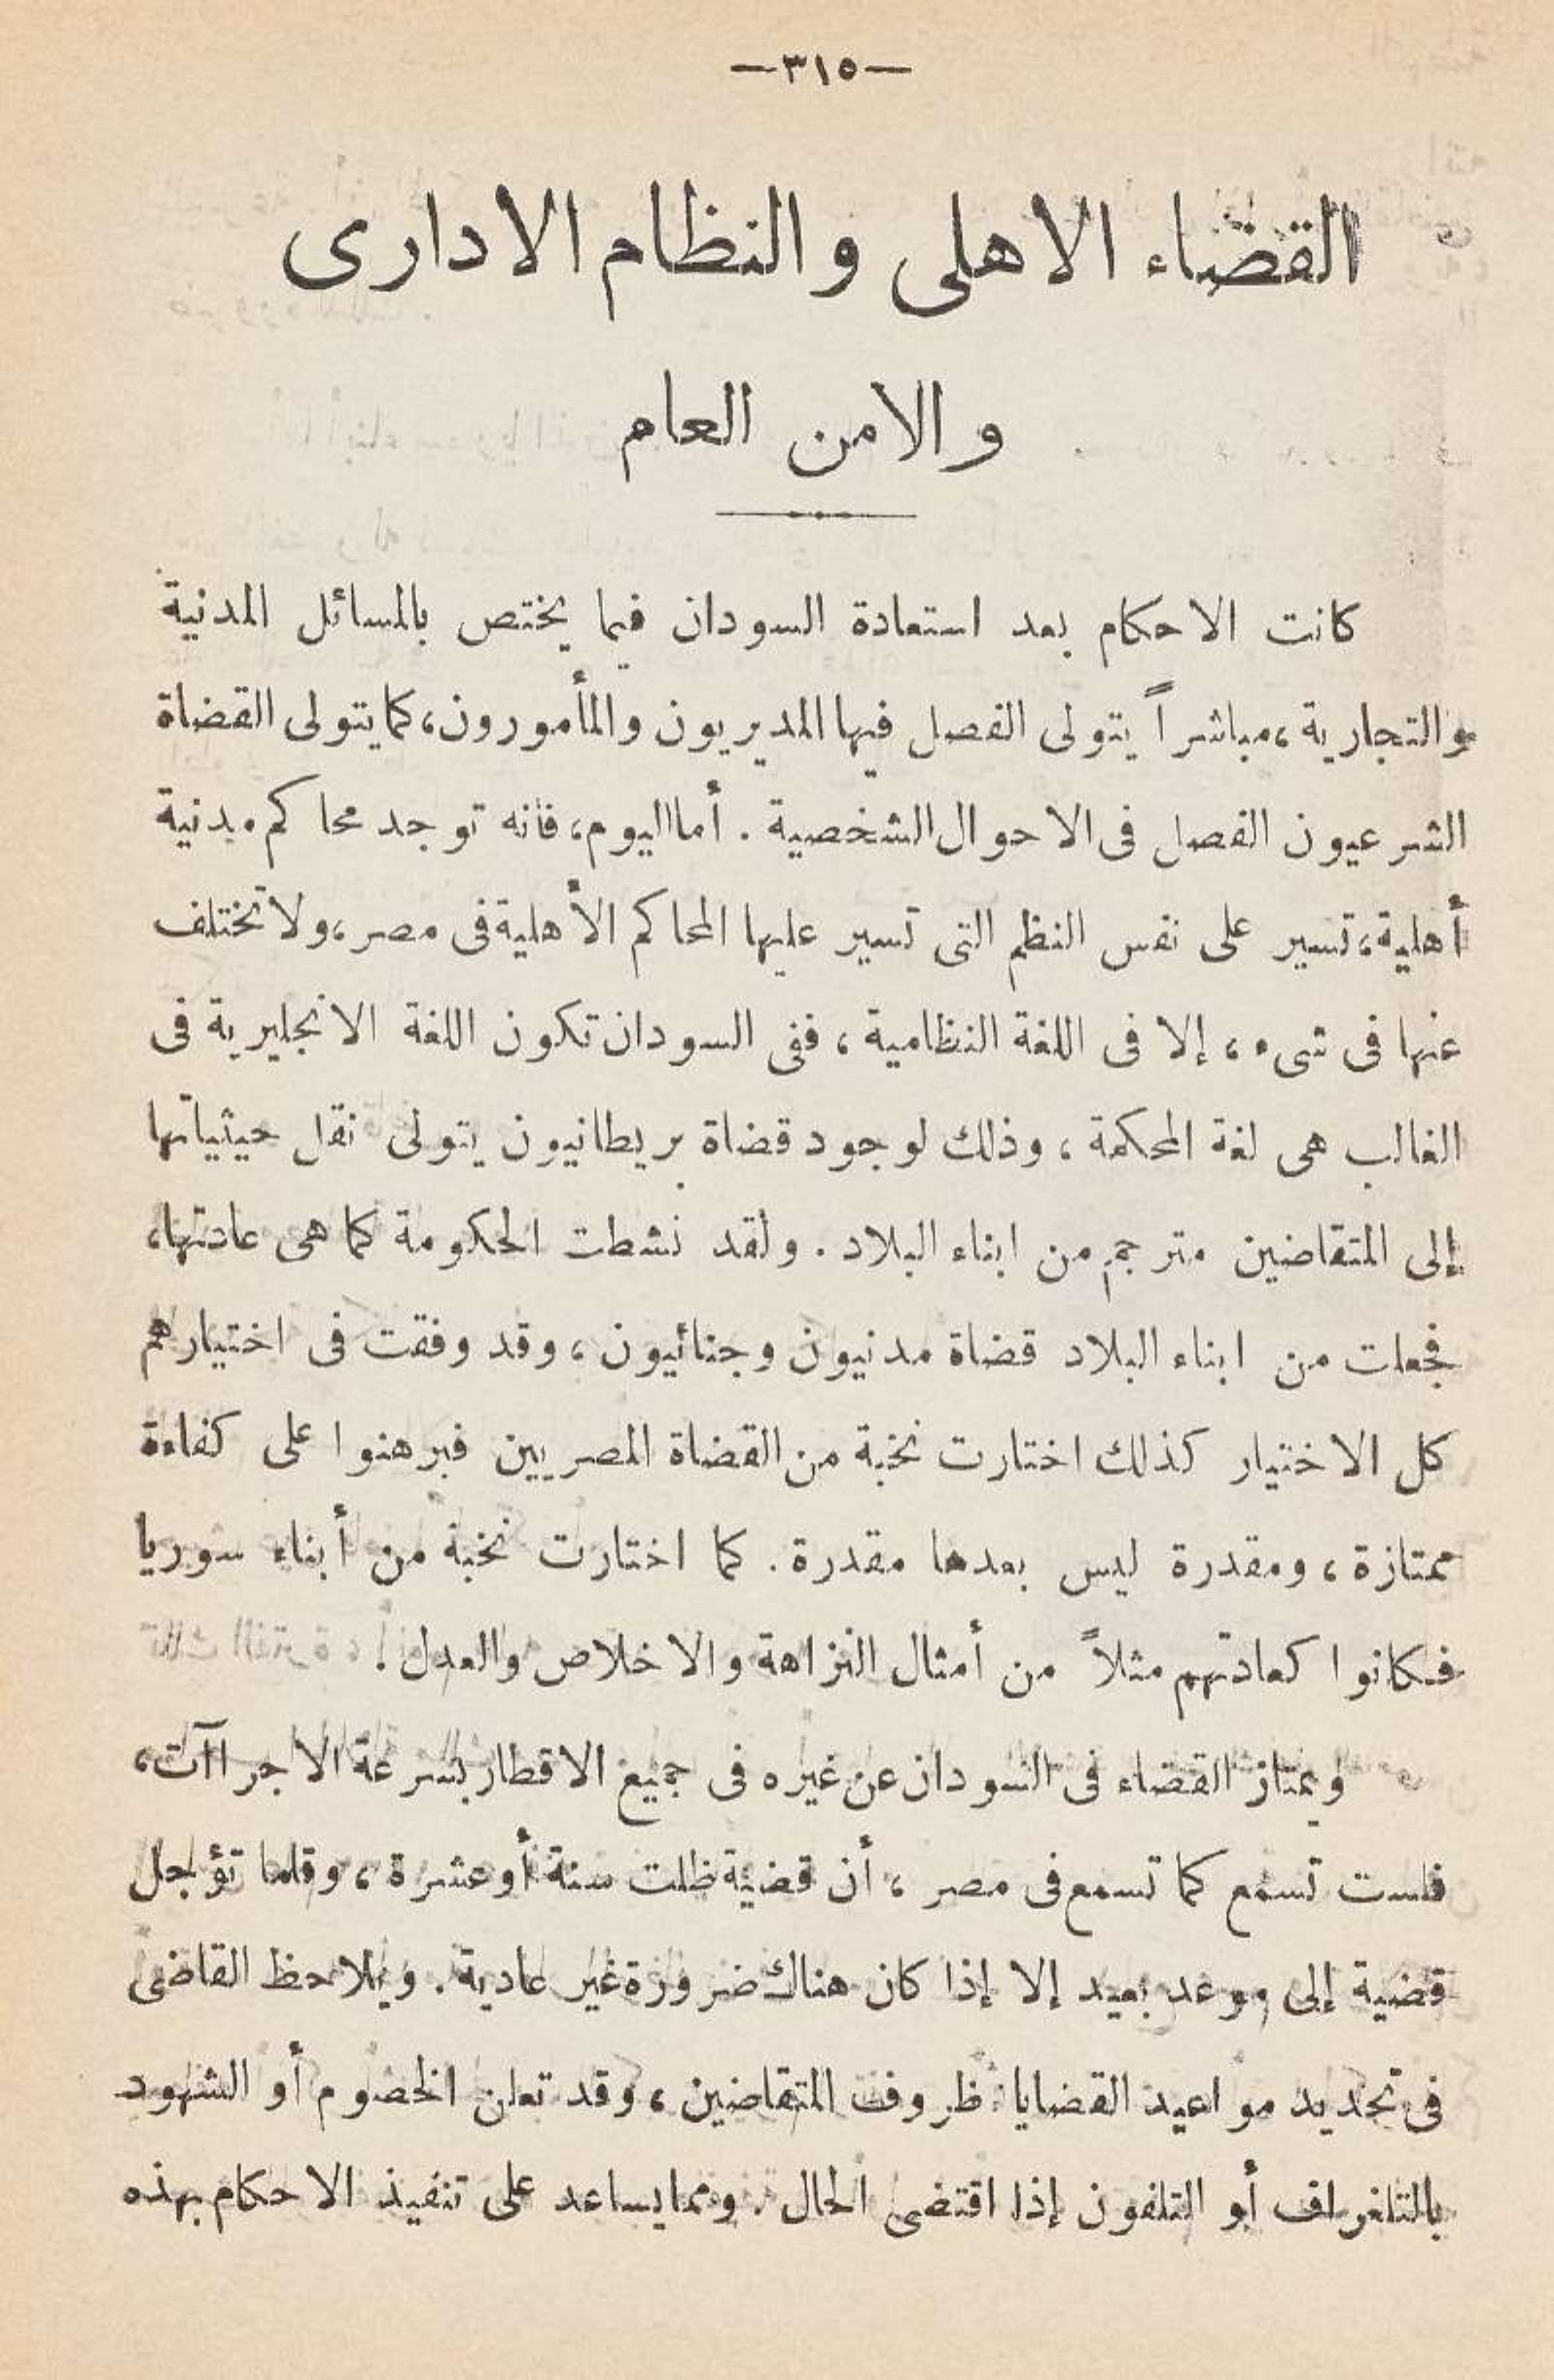 —٣١٥—
القضاء الاهلى والنظام الادارى
والامن العام
كانت الاحكام بعد استعادة السودان فيما يختص بالمسائل المدنية
والتجارية، مباشراً يتولى الفصل فيها المديريون والمأمورون، كما يتولى القضاة
الشرعيون الفصل فى الاحوال الشخصية . أما اليوم، فانه توجد محاكم مدنية
أهلية، تسير على نفس النظم التى تسير عليها المحاكم الأهلية فى مصر، ولا تختلف
عنها فى شىء ، إلا فى اللغة النظامية ، ففى السودان تكون اللغة الانجليرية فى
الغالب هى لغة المحكمة ، وذلك لوجود قضاة بريطانيون يتولى نقل حيثياتها
إلى المتقاضين مترجم من ابناء البلاد . ولقد نشطت الحكومة كما هى عادتها،
فجعلت من ابناء البلاد قضاة مدنيون وجنائيون ، وقد وفقت فى اختيارهم
كل الاختيار كذلك اختارت نخبة من القضاة المصريين فبرهنوا على كفاءة
ممتازة ، ومقدرة ليس بعدها مقدرة . كما اختارت نخبة من أبناء سوريا
فكانوا كعادتهم مثلاً من أمثال النزاهة والاخلاص والعدل !
ويمتاز القضاء فى السودان عن غيره فى جميع الاقطار بسرعة الاجراآت،
فلست تسمع كما تسمع فى مصر ، أن قضية ظلت سنة أو عشرة ، وقلما تؤجل
قضية إلى موعد بعيد إلا إذا كان هناك ضرورة غير عادية . ويلاحظ القاضى
فى تحديد مواعيد القضايا ظروف المتقاضين ، وقد تعلن الخصوم أو الشهود
بالتلغراف أو التلفون إذا اقتضى الحال . ومما يساعد على تنفيذ الاحكام بهذه